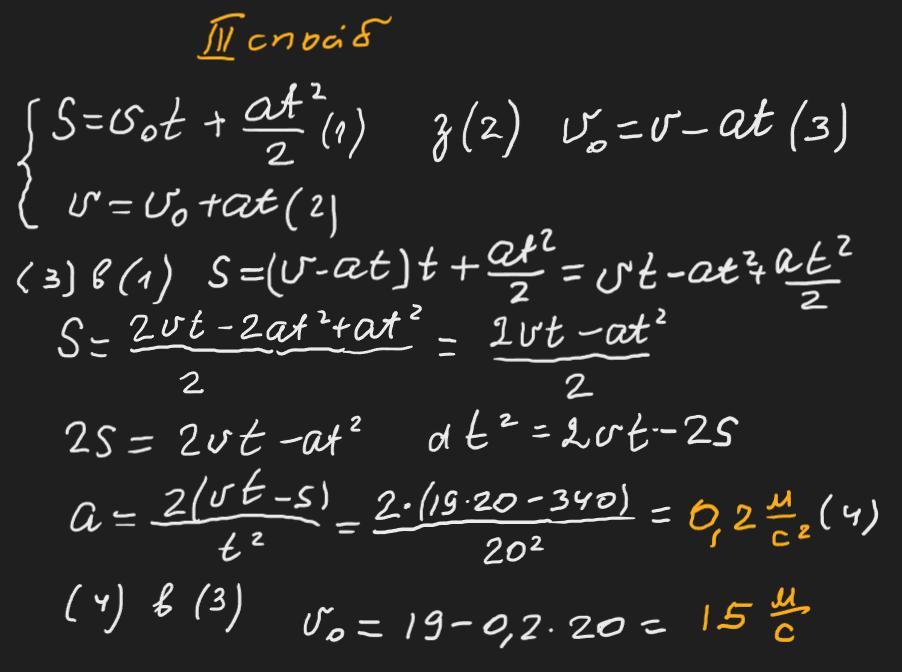 III спосіб
S = v₀t + at²/2 (1) з (2) v₀ = v – at (3)
v = v₀ + at (2)
(3) в (1) S = (v - at)t + at²/2 = vt - at² + at²/2
S = (2vt - 2at² + at²)/2 = (2vt - at²)/2
2S = 2vt - at² at² = 2vt - 2S
a = 2(vt - s)/t² = 2·(19·20 - 340)/20² = 0,2 м/с² (4)
(4) в (3) v₀ = 19 - 0,2·20 = 15 м/с